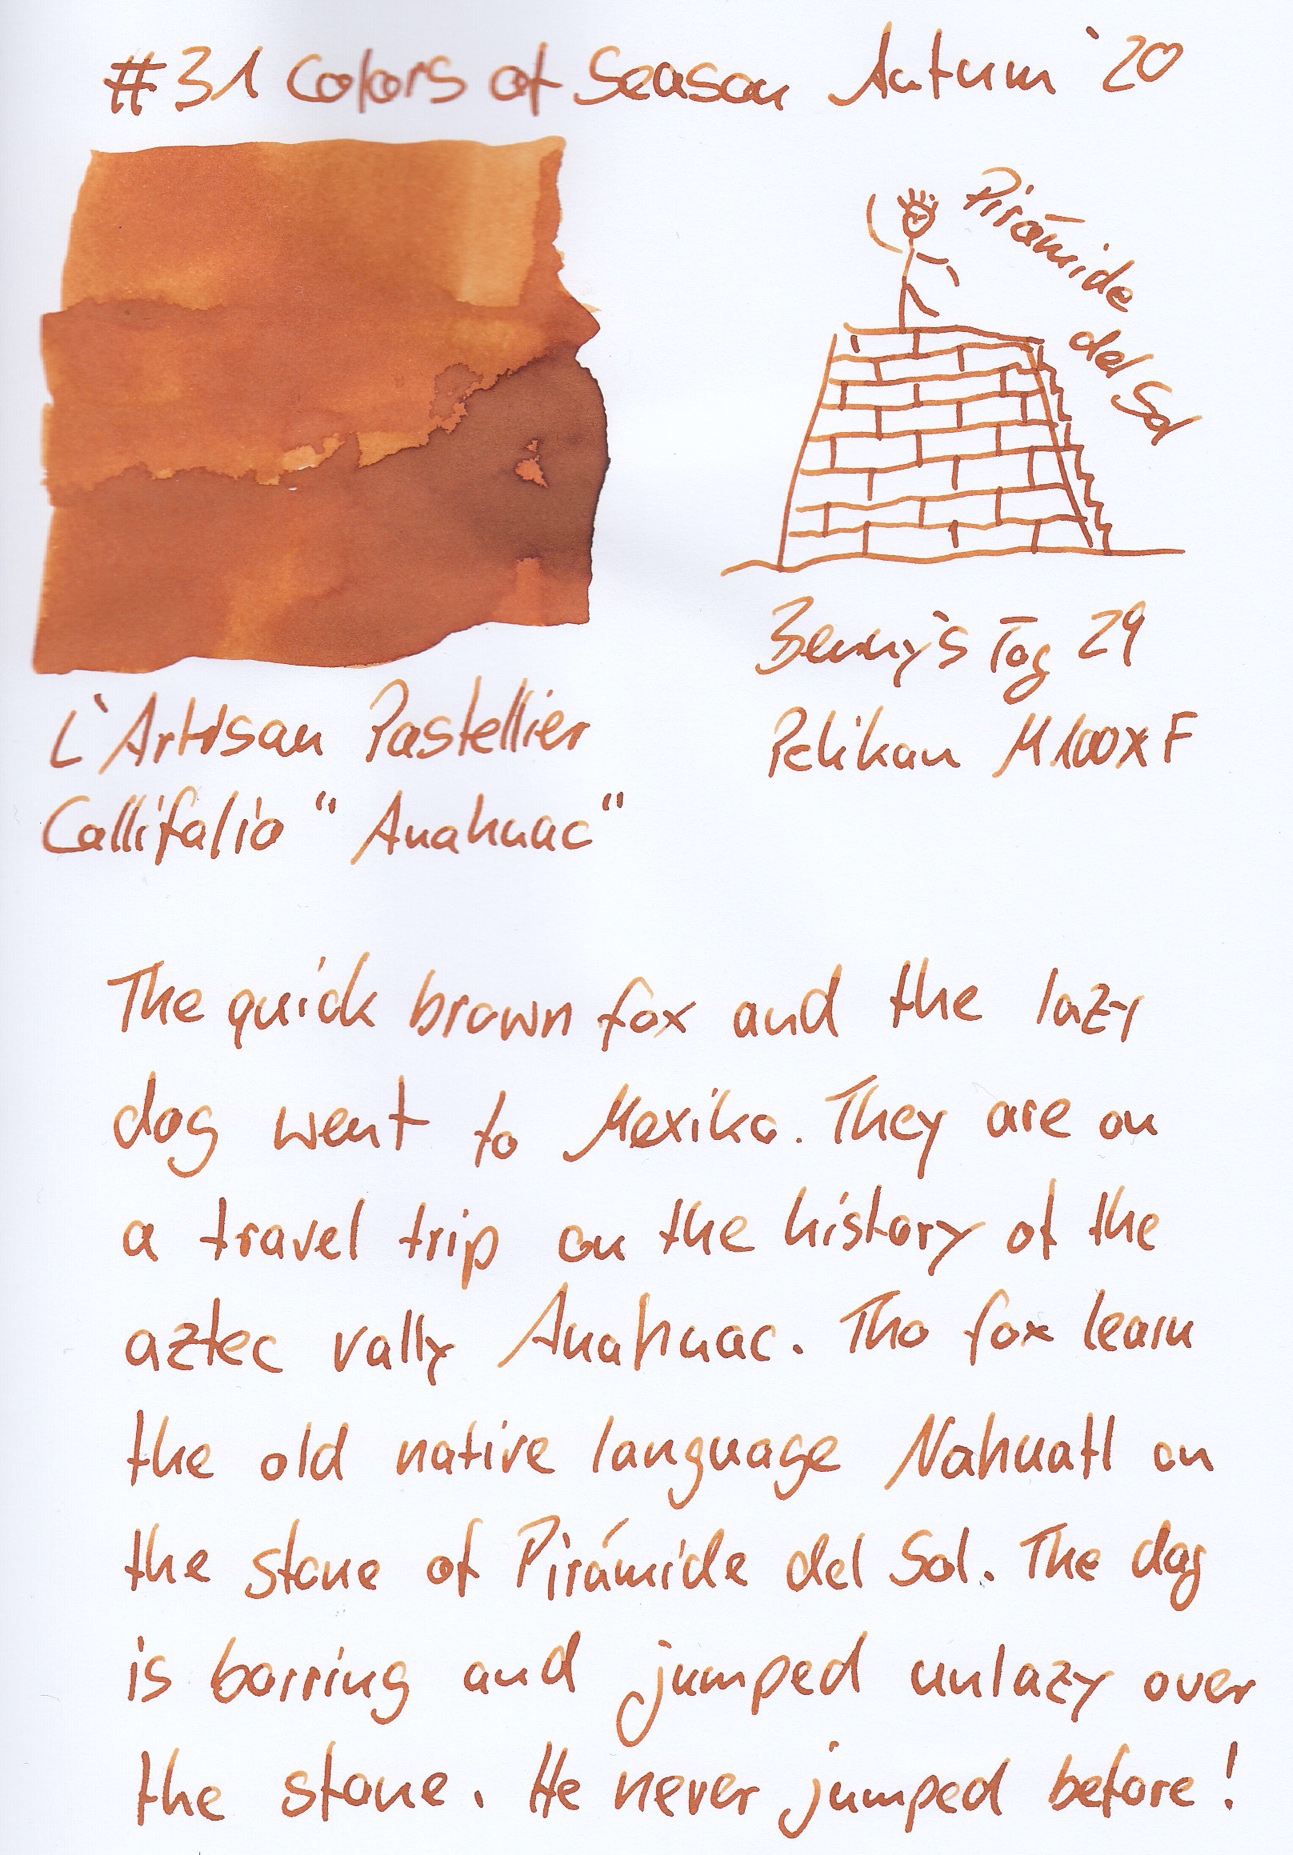 #31 Colors of Season Autum '20
Pirámide
del Sol
Benny's Tag 29
Pelikan M100x F
L'Artisan Pastellier
Callifolio "Anahuac"
The quick brown fox and the lazy
dog went to Mexiko. They are on
a travel trip on the history of the
aztec vally Anahuac. Tho fox learn
the old native language Nahuatl on
the stone of Pirámide del Sol. The dog
is borring and jumped unlazy over
the stone. He never jumped before!